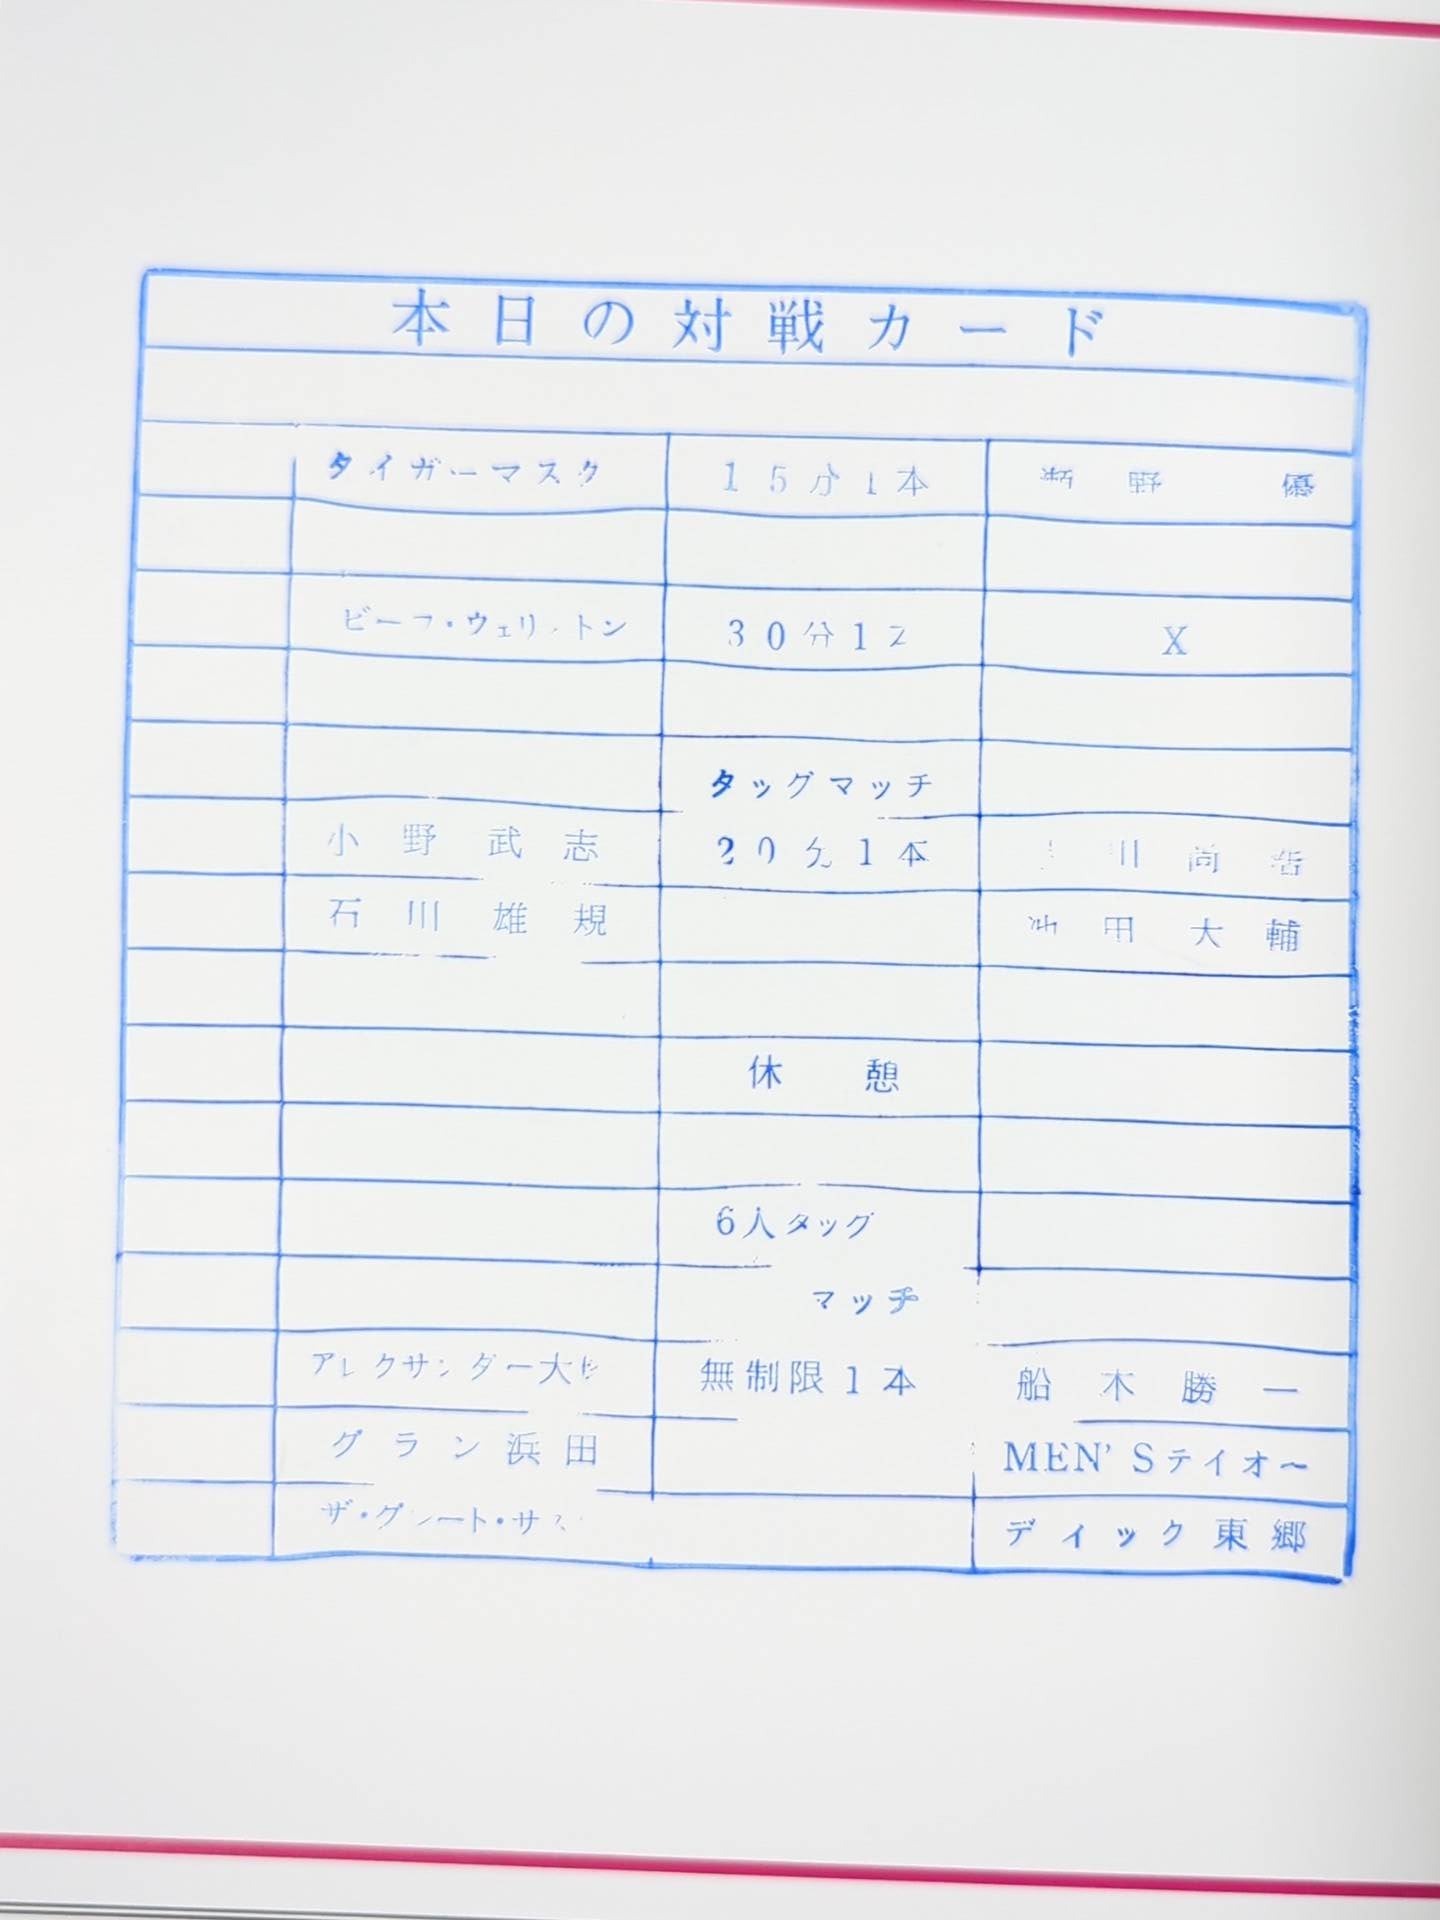 本日の対戦カード
タイガーマスク 15分1本 野 優
ビーフ・ウェリントン 30分1 X
タッグマッチ
小野武志 20分1本 川尚
石川雄規 田大輔
休憩
6人タッグ
マッチ
アレクサンダー大 無制限1本 船木勝一
グラン浜田 MEN'Sテイオー
ザ・グレート・サス ディック東郷